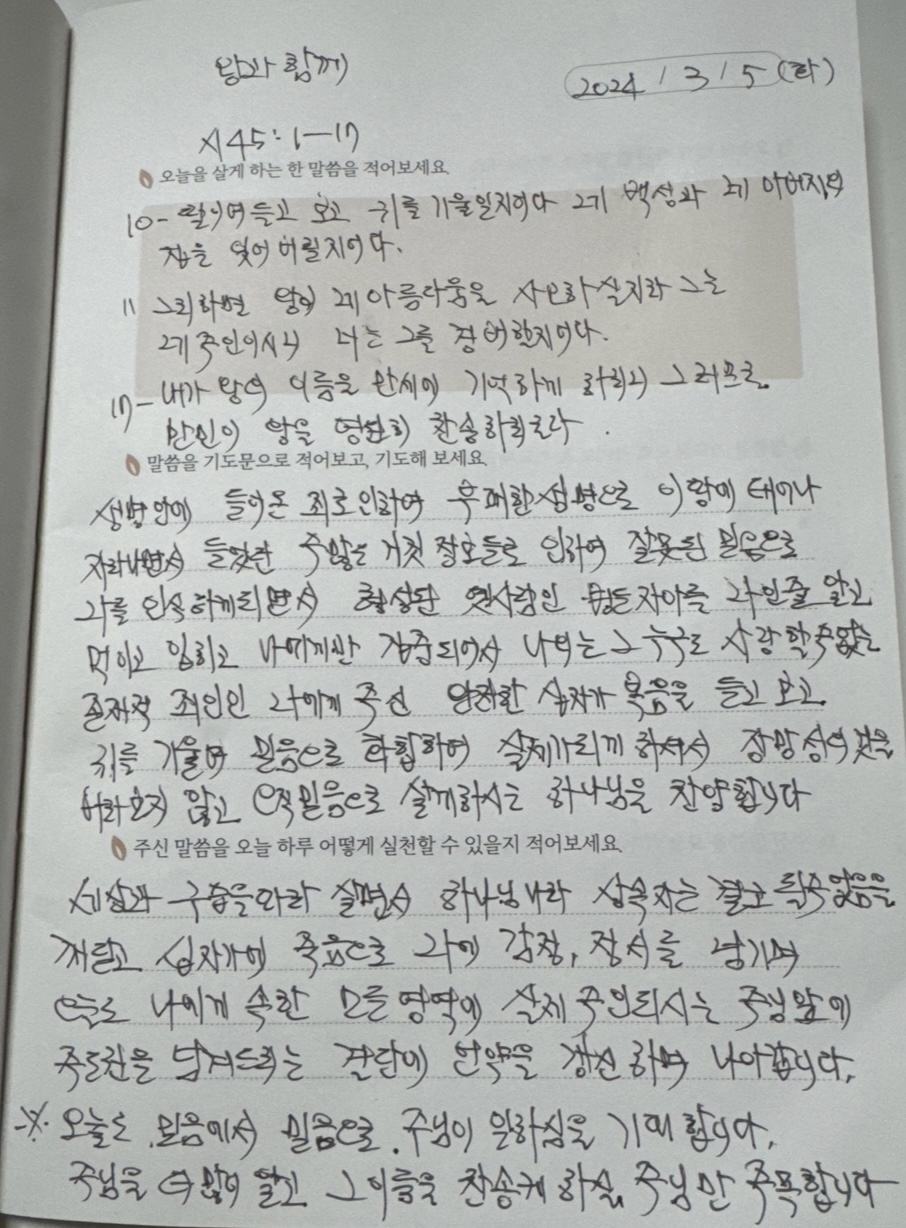 왕과 함께
2024 / 3 / 5 (화)
시45:1-17
오늘을 살게 하는 한 말씀을 적어보세요.
10- 딸이여 듣고 보고 귀를 기울일지어다 네 백성과 네 아버지의
집을 잊어버릴지어다.
11 그리하면 왕이 네 아름다움을 사모하실지라 그는
네 주인이시니 너는 그를 경배할지어다.
17- 내가 왕의 이름을 만세에 기억하게 하리니 그러므로
만민이 왕을 영원히 찬송하리로다.
말씀을 기도문으로 적어보고, 기도해 보세요.
생명안에 들어온 죄로인하여 부패한생명으로 이땅에 태어나
자라나면서 들었던 수많은 거짓 정보들로 인하여 잘못된 믿음으로
나를 인식하게되면서 형성된 옛사람인 병든자아를 나인줄 알고
먹이고 입히고 나에게만 집중되어서 나외는 그 누구도 사랑할수없는
존재적 죄인인 나에게 주신 완전한 십자가 복음을 듣고 보고
귀를 기울여 믿음으로 화합하여 실제가되게 하셔서 장망성의 것을
바라보지 않고 오직믿음으로 살게하시는 하나님을 찬양합니다
주신 말씀을 오늘 하루 어떻게 실천할 수 있을지 적어보세요.
세상과 구습을따라 살면서 하나님나라 상속자는 결코 될수 없음을
깨닫고 십자가에 죽음으로 나의 감정, 정서를 넘기며
오늘도 나에게 속한 모든영역에 실제 주인되시는 주님앞에
주도권을 넘겨드리는 결단의 언약을 갱신하며 나아갑니다.
※ 오늘도 믿음에서 믿음으로 주님이 일하심을 기대합니다.
주님을 더많이 알고 그 이름을 찬송케 하실 주님만 주목합니다